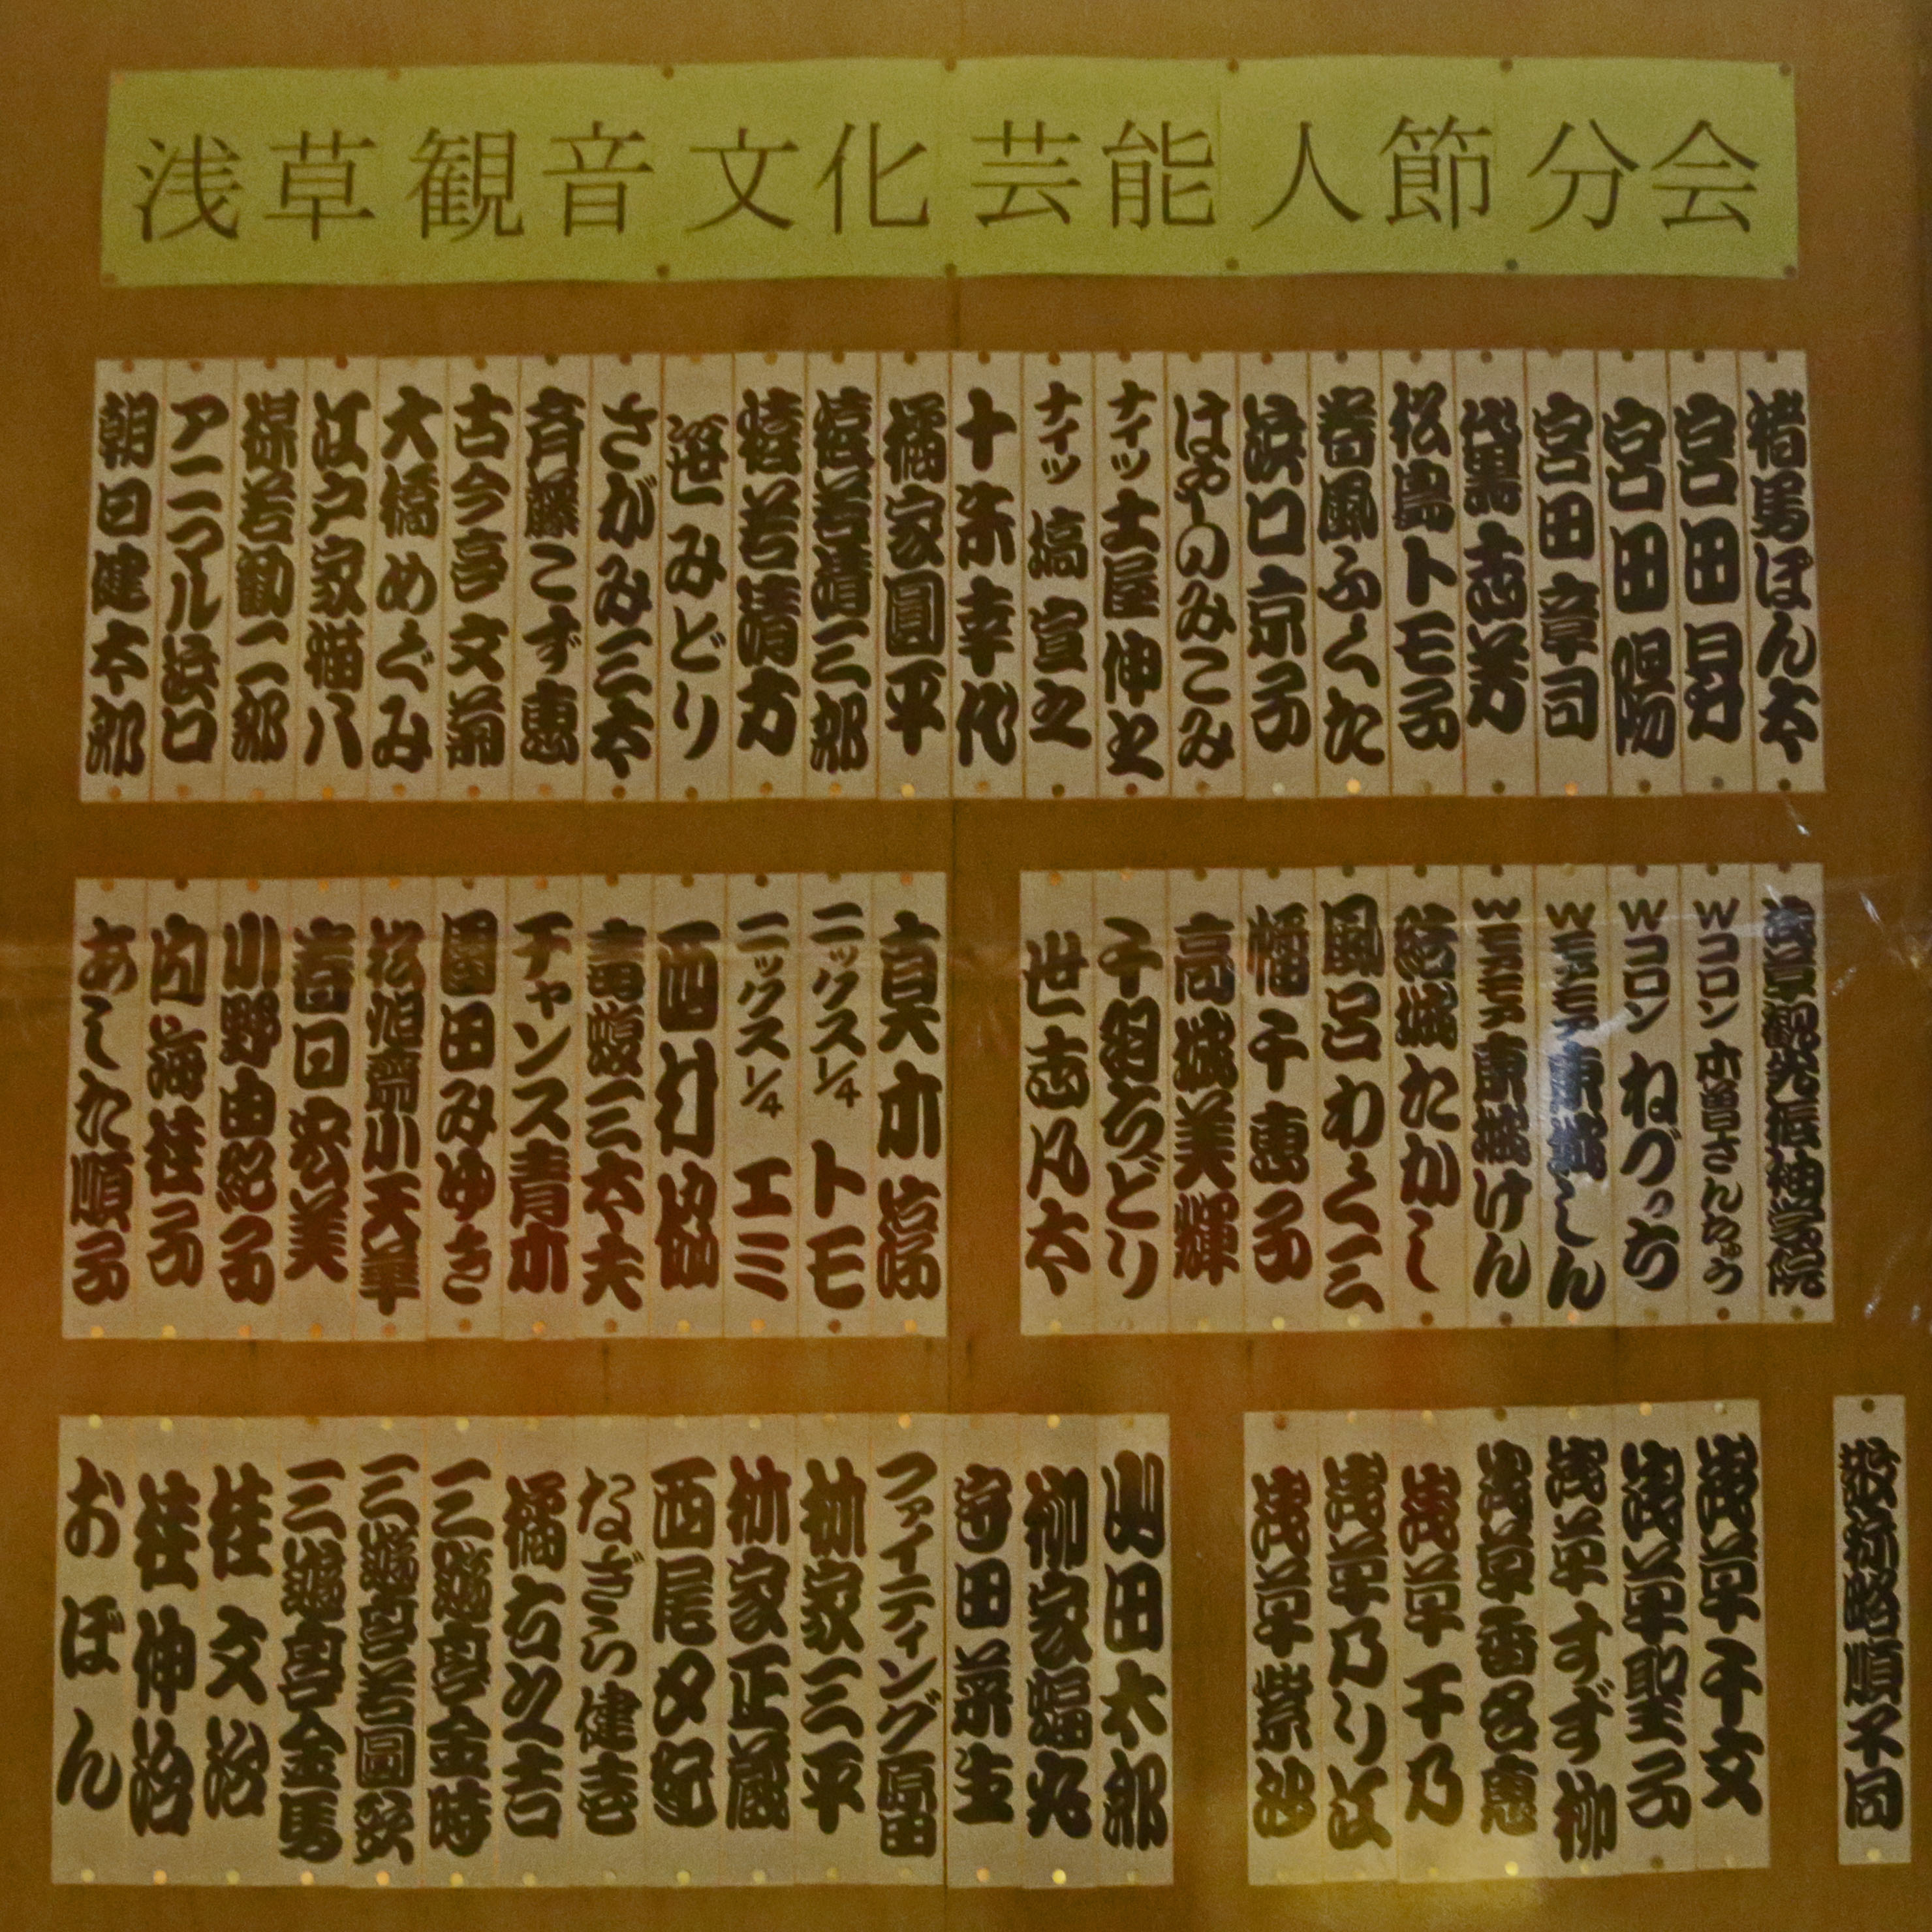 浅草観音文化芸能人節分会
朝日健太郎
アニマル浜口
江戸家猫八
大橋めぐみ
古今亭文菊
斉藤こず恵
さがみ三太
笹みどり
猿若清方
猿若清三郎
橘家圓平
十朱幸代
ナイツ 塙宣之
ナイツ 土屋伸之
はやのみこみ
浜口京子
春風ふくた
松島トモ子
黛志芳
宮田章司
宮田陽
宮田昇
猪馬ぽん太
あした順子
内海桂子
小野由紀子
春日宏美
松旭齋小天華
園田みゆき
チャンス青木
毒蝮三太夫
ニックス1/4 エミ
ニックス1/4 トモ
真木淳
世志凡太
千羽ちどり
高城美輝
幡千恵子
風呂わく三
結城たかし
Wモアモア東城けん
Wモアモア東城しん
Wコロン ねづっち
Wコロン 木曽さんちゅう
浅草観光振袖学院
おぼん
桂伸治
桂文治
三遊亭金馬
三遊亭若圓歌
三遊亭金時
橘右之吉
なぎら健壱
西尾夕紀
林家正蔵
林家三平
ファイティング原田
守田菜生
柳家蝠丸
山田太郎
浅草紫沙
浅草乃り江
浅草千乃
浅草すず柳
浅草聖子
浅草千文
敬称略順不同